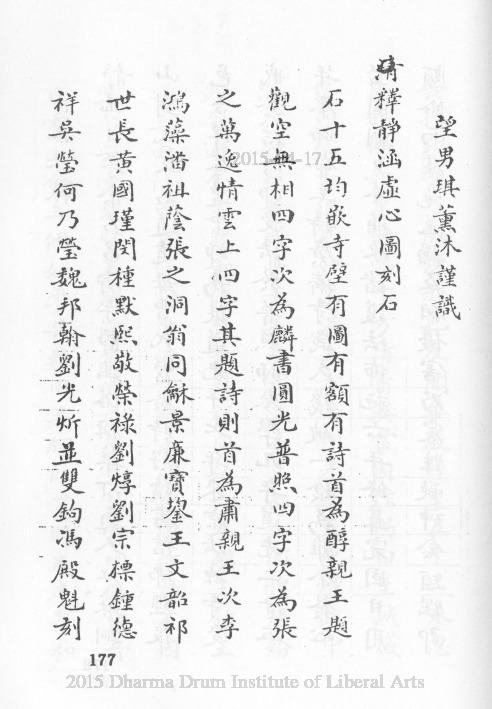 望男琪薰沐謹識
清釋靜涵虛心圖刻石
石十五均嵌寺壁有圖有額有詩首為醇親王題
觀空無相四字次為麟書圓光普照四字次為張
之萬逸情雲上四字其題詩則首為肅親王次李
鴻藻潘祖蔭張之洞翁同龢景廉寶鋆王文韶祁
世長黃國瑾閔種默熙敬榮祿劉焞劉宗標鍾德
祥吳瑩何乃瑩魏邦翰劉光炘並雙鉤馮殿魁刻
177
2015 Dharma Drum Institute of Liberal Arts